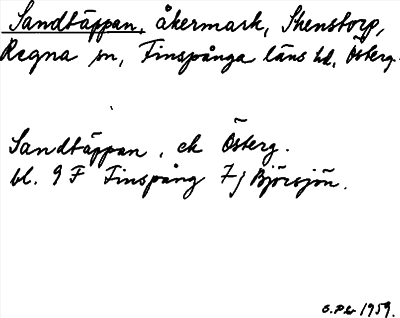 Sandtäppan, åkermark, Stenstorp,
Regna sn, Finspånga läns hd, Österg.
Sandtäppan, ek Österg.
bl. 9 F Finspång 7j Björsjön.
1959.